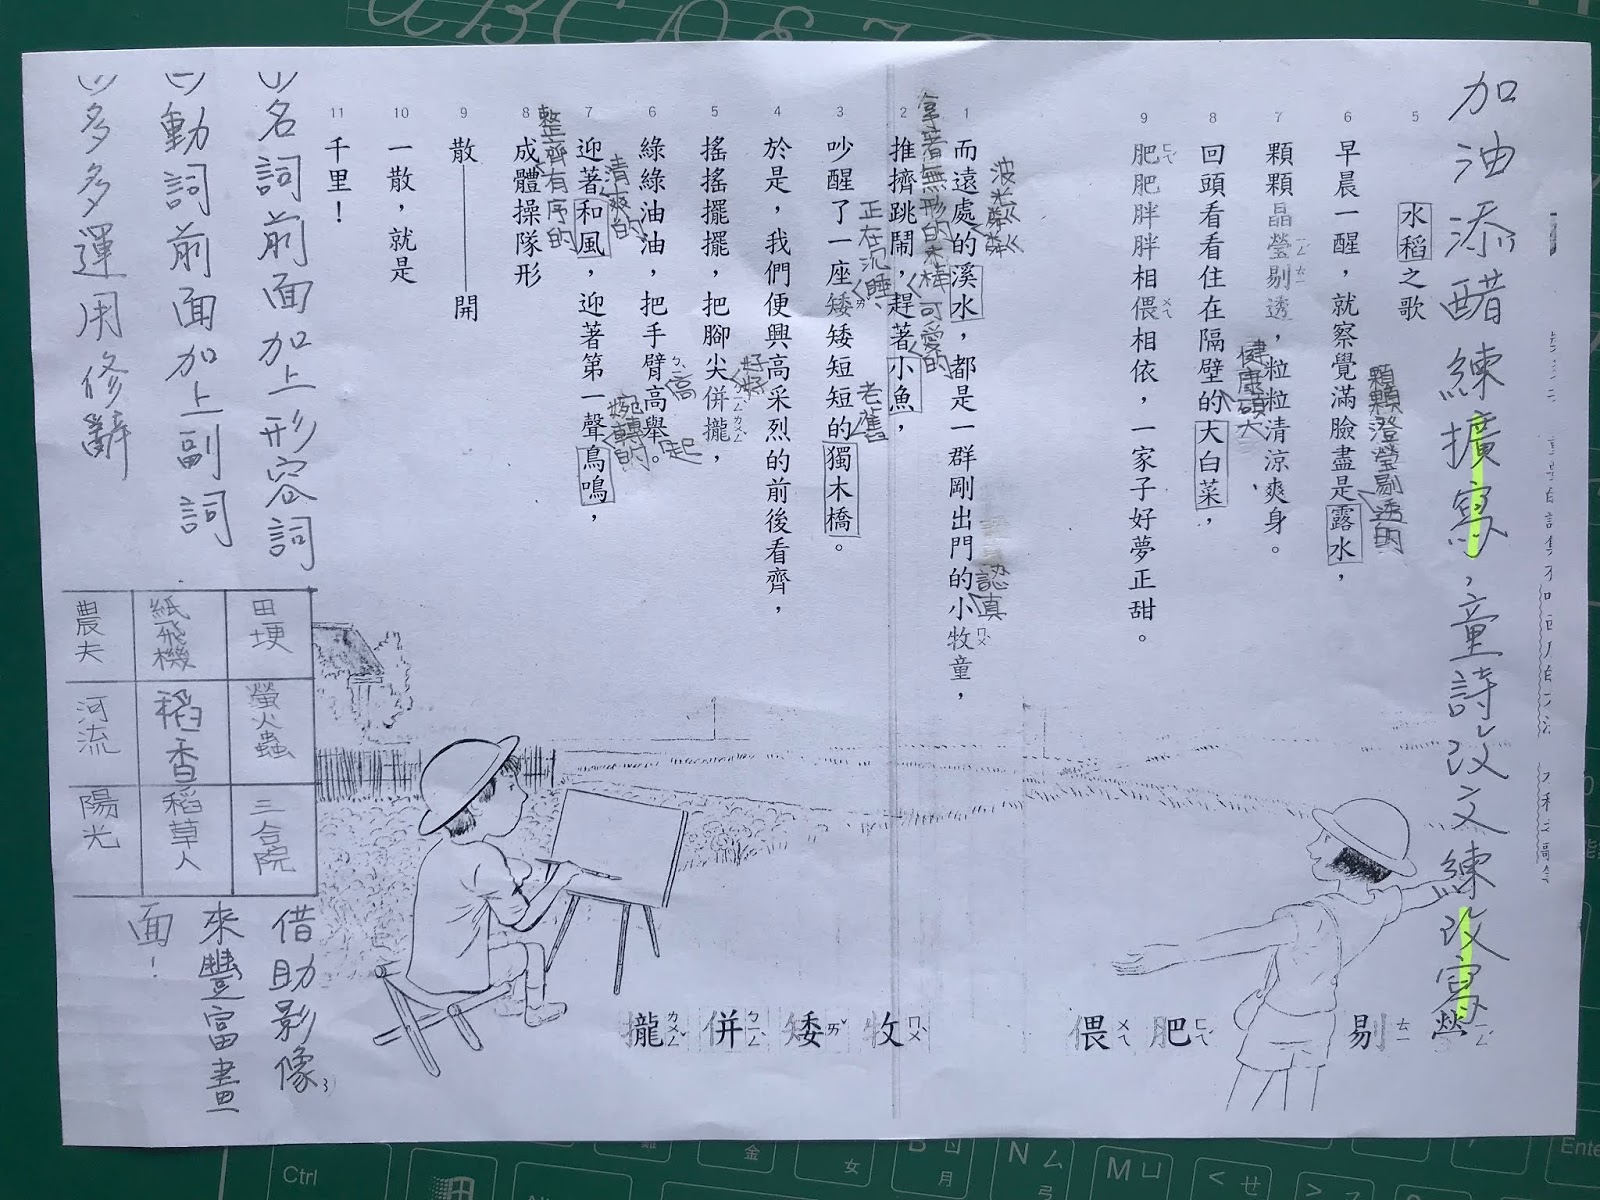 加油添醋練擴寫,童詩改文練改寫
5
水稻之歌
6
早晨一醒,就察覺滿臉盡是露水,
顆顆澄瑩剔透的
7
顆顆晶瑩剔透,粒粒清涼爽身。
8
回頭看看住在隔壁的大白菜,
健康碩大
9
肥肥胖胖相偎相依,一家子好夢正甜。
1
而遠處的溪水,都是一群剛出門的小牧童,
波光粼粼
認真
2
推擠跳鬧,趕著小魚,
拿著無形的木棒
可愛的
3
吵醒了一座矮矮短短的獨木橋。
正在沉睡
老舊
4
於是,我們便興高采烈的前後看齊,
5
搖搖擺擺,把腳尖併攏,
好好
6
綠綠油油,把手臂高舉。
高
起
7
迎著和風,迎著第一聲鳥鳴,
清爽的
婉轉的
8
成體操隊形
整齊有序的
9
散——開
10
一散,就是
11
千里!
(1)名詞前面加上形容詞
(2)動詞前面加上副詞
(3)多多運用修辭
田埂
螢火蟲
三合院
紙飛機
稻香
稻草人
農夫
河流
陽光
借助影像
來豐富畫
面!
瑩
剔
肥
偎
牧
矮
併
攏
Ctrl
B
N
M
Enter